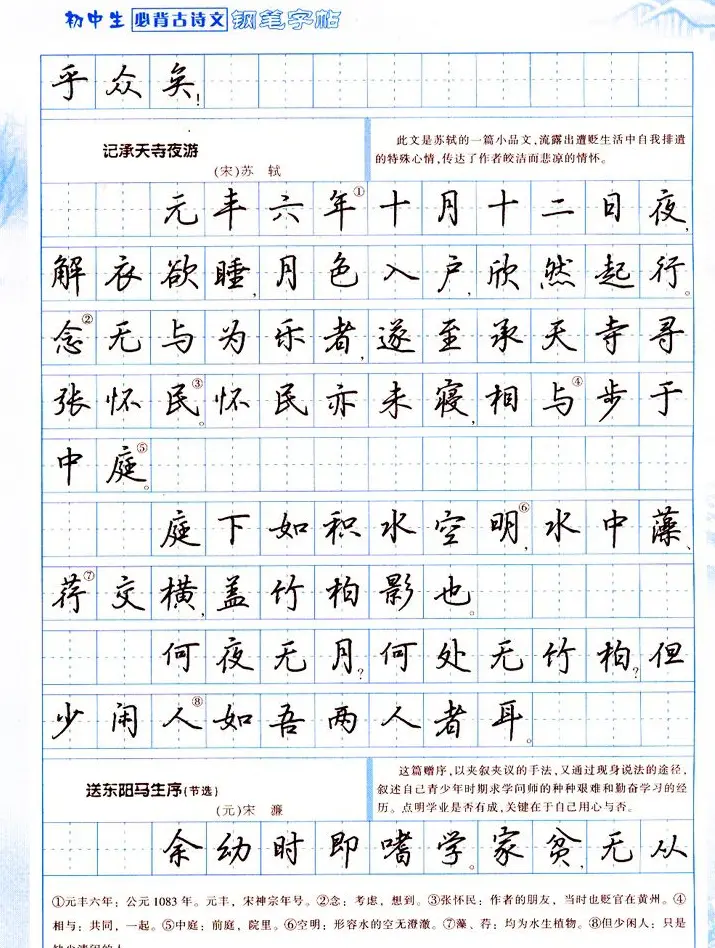 初中生 必背古诗文 钢笔字帖
乎众矣!
记承天寺夜游
(宋)苏 轼
此文是苏轼的一篇小品文,流露出遭贬生活中自我排遣
的特殊心情,传达了作者皎洁而悲凉的情怀。
元丰六年①十月十二日夜,
解衣欲睡,月色入户,欣然起行。
念②无与为乐者,遂至承天寺寻
张怀民③。怀民亦未寝,相与④步于
中庭⑤。
庭下如积水空明⑥,水中藻、
荇⑦交横,盖竹柏影也。
何夜无月?何处无竹柏?但
少闲人⑧如吾两人者耳。
送东阳马生序(节选)
(元)宋 濂
这篇赠序,以夹叙夹议的手法,又通过现身说法的途径,
叙述自己青少年时期求学问师的种种艰难和勤奋学习的经
历。点明学业是否有成,关键在于自己用心与否。
余幼时即嗜学。家贫,无从
①元丰六年:公元1083年。元丰,宋神宗年号。②念:考虑,想到。③张怀民:作者的朋友,当时也贬官在黄州。④
相与:共同,一起。⑤中庭:前庭,院里。⑥空明:形容水的空无澄澈。⑦藻、荇:均为水生植物。⑧但少闲人:只是